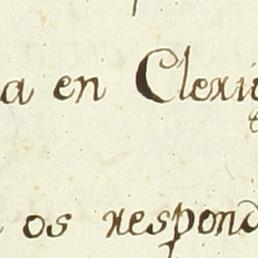 a en Clexi
os respond